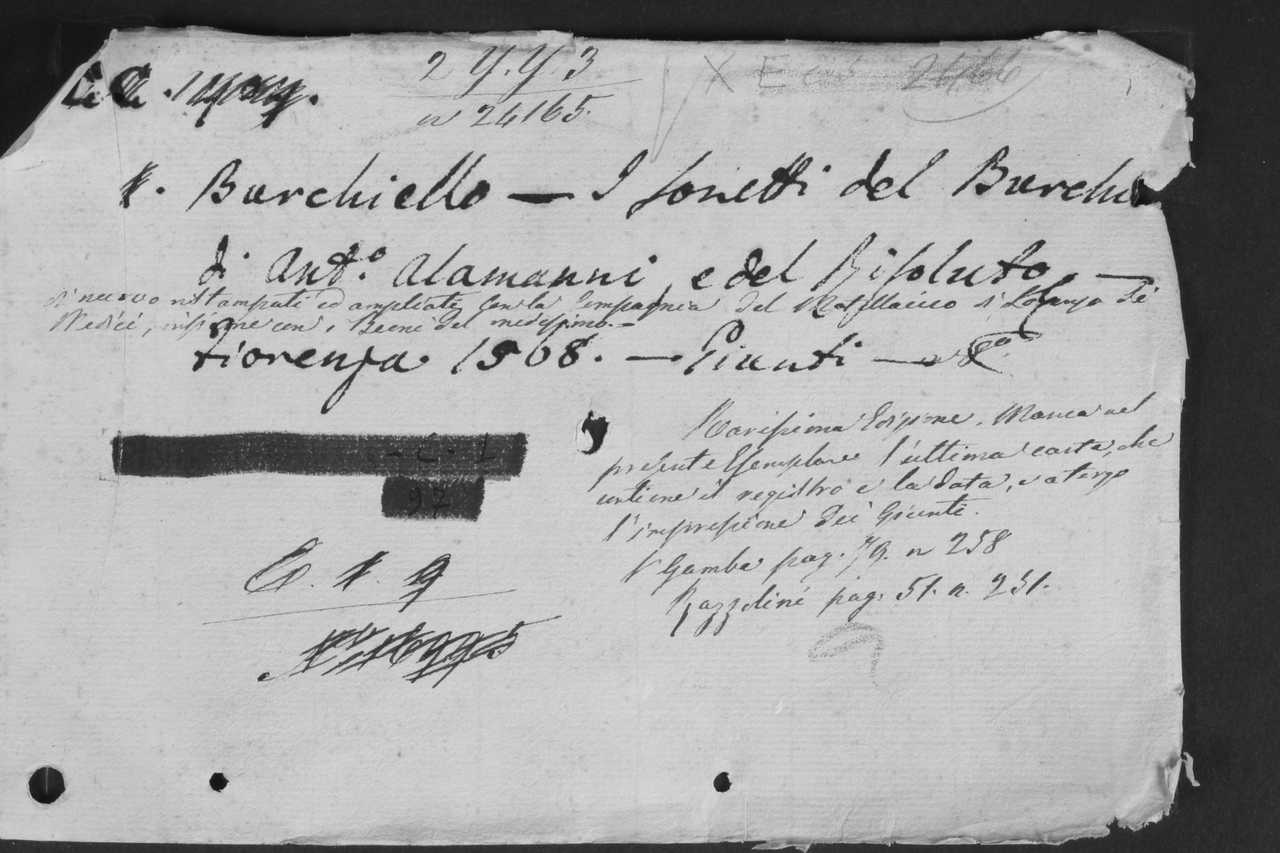 2 Y.Y.3
n 24165.
X E 24166
Burchiello — I sonetti del Burchie
di Ant.o Alamanni, e del Risoluto, —
di nuovo ristampati ed ampliati con la Compagnia del Mantellaccio di Lorenzo de
Medici, insieme con i Beoni del medesimo. —
Fiorenza 1568. — Giunti — 8.o
Rarissima Edizione. Manca nel
presente Esemplare l'ultima carta, che
contiene il registro e la data, e a tergo
l'impressione dei Giunti.
V Gamba pag. 79. n 258
Razzolini pag. 51. n. 251.
- C. 1
97
E. *. 9